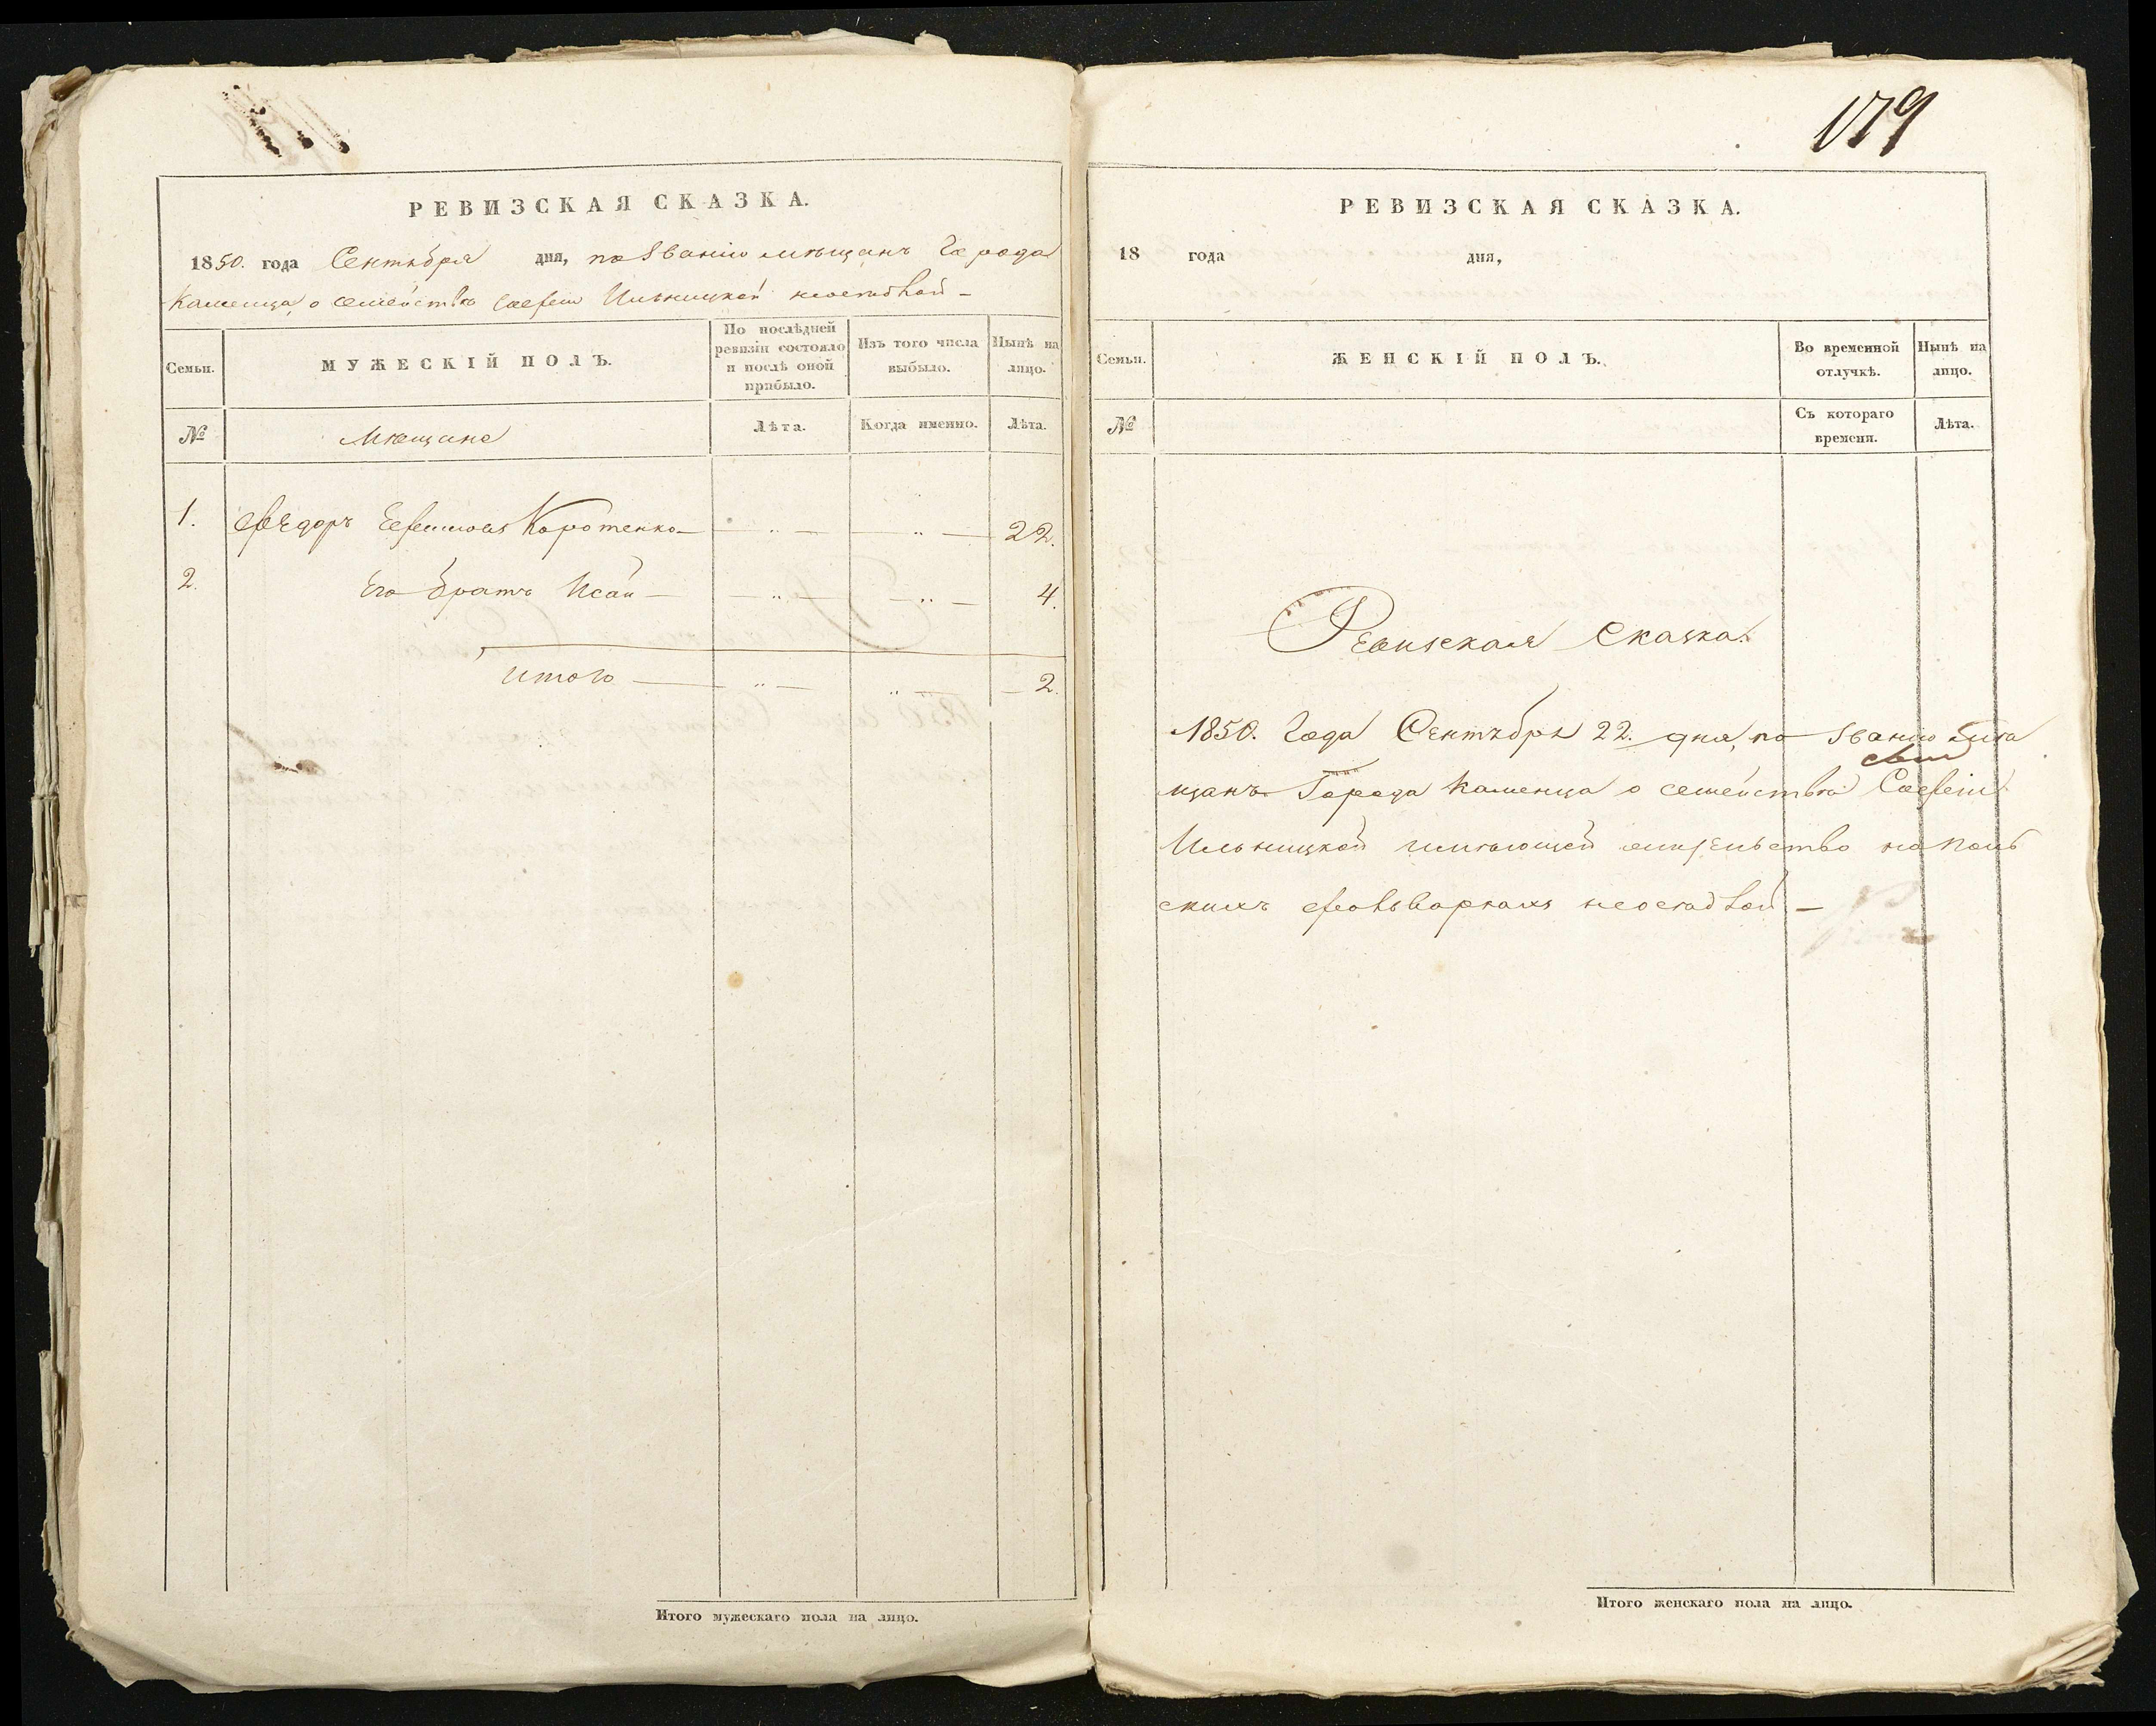 РЕВИЗСКАЯ СКАЗКА.
1850. года Сентября дня, по званію мѣщанъ Города
Каменца, о семействѣ Софіи Ильницкой неосѣдлой —
Семьи.
МУЖЕСКІЙ ПОЛЪ.
По послѣдней
ревизіи состояло
и послѣ оной
прибыло.
Изъ того числа
выбыло.
Нынѣ на
лицо.
№
Мѣщане
Лѣта.
Когда именно.
Лѣта.
1. Федоръ Ефимовъ Коротенко — „ — — „ — 22.
2. Его братъ Исай — — „ — — „ — 4.
Итого — „ — „ — 2.
Итого мужескаго пола на лицо.
179
РЕВИЗСКАЯ СКАЗКА.
18 года дня,
Семьи.
ЖЕНСКІЙ ПОЛЪ.
Во временной
отлучкѣ.
Нынѣ на
лицо.
№
Съ котораго
времени.
Лѣта.
Ревизская Сказка.
1850. Года Сентября 22. дня, по званію мѣ
щанъ Города Каменца о семействѣ Софіи
Ильницкой имѣющей жительство на Поль
скихъ фольваркахъ неосѣдлой —
Итого женскаго пола на лицо.